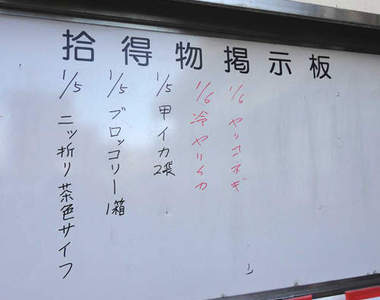 拾得物掲示板
1/5 二ツ折り茶色サイフ
1/5 ブロッコリー1箱
1/5 甲イカ2袋
1/6 冷ヤリイカ
1/6 ヤッコネギ